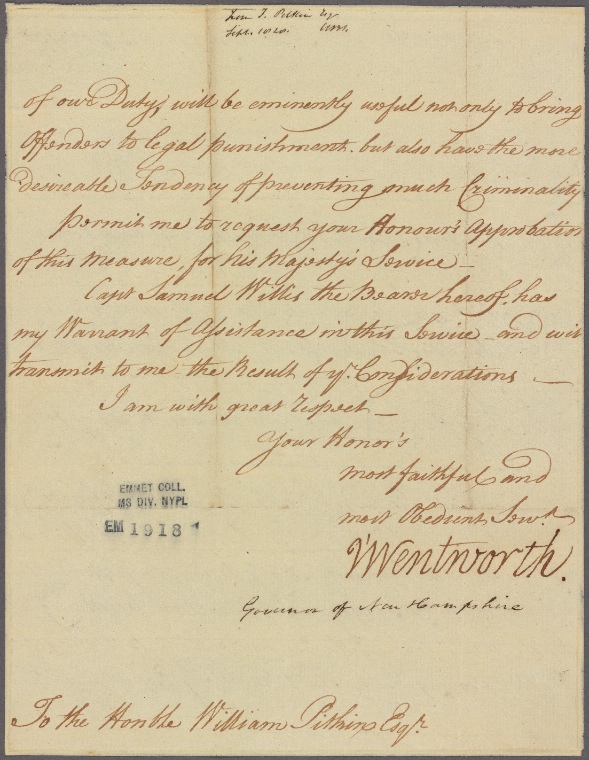 From T. Pitkin Esq
Sept. 1828.
of our Duty, will be eminently useful not only to bring
Offenders to legal punishment. but also have the more
desireable Tendency of preventing much Criminality
permit me to request your Honour's Approbation
of this measure, for his Majesty's Service —
Capt Samuel Willis the Bearer hereof, has
my Warrant of Assistance in this Service - and will
transmit to me the Result of yr. Considerations —
I am with great respect —
Your Honor's
most faithful and
most Obedient Servt.
J Wentworth.
Governor of New Hampshire
EMMET COLL.
MS DIV. NYPL
EM 1918
To the Honble William Pitkin Esqr.